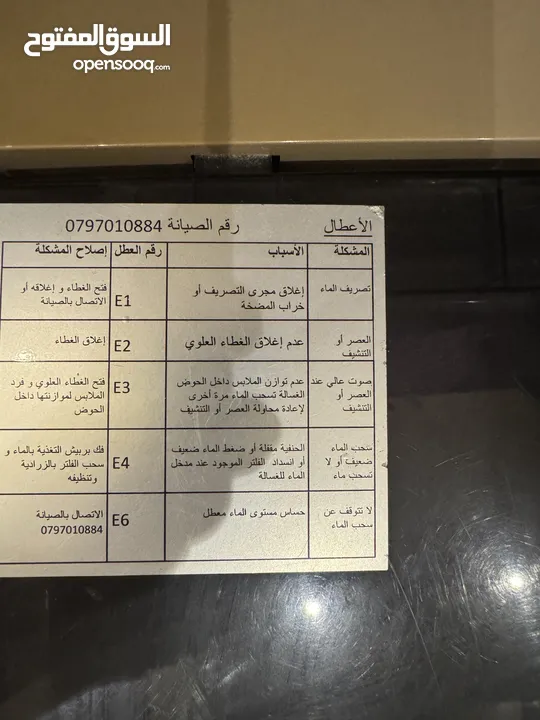 السوق المفتوح
opensooq.com
الأعطال رقم الصيانة 0797010884
المشكلة الأسباب رقم العطل إصلاح المشكلة
تصريف الماء إغلاق مجرى التصريف أو E1 فتح الغطاء و إغلاقه أو
خراب المضخة الاتصال بالصيانة
العصر أو عدم إغلاق الغطاء العلوي E2 إغلاق الغطاء
التنشيف
صوت عالي عند عدم توازن الملابس داخل الحوض E3 فتح الغطاء العلوي و فرد
العصر أو الغسالة تسحب الماء مرة أخرى الملابس لموازنتها داخل
التنشيف لإعادة محاولة العصر أو التنشيف الحوض
سحب الماء الحنفية مقفلة أو ضغط الماء ضعيف E4 فك بربيش التغذية بالماء و
ضعيف أو لا أو انسداد الفلتر الموجود عند مدخل سحب الفلتر بالزرادية
تسحب ماء الماء للغسالة وتنظيفه
لا تتوقف عن حساس مستوى الماء معطل E6 الاتصال بالصيانة
سحب الماء 0797010884